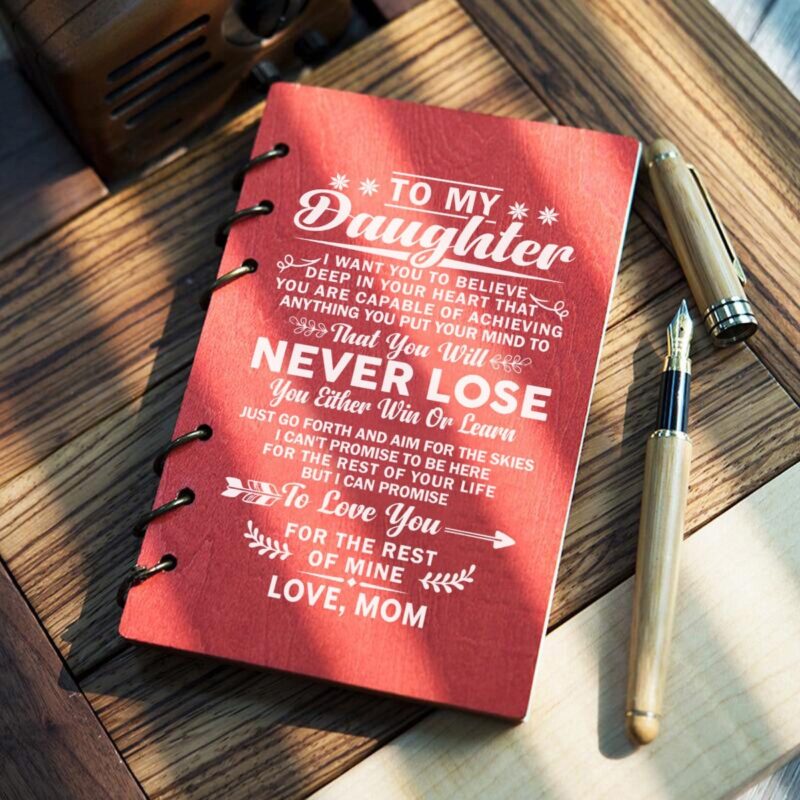 TO MY
Daughter
I WANT YOU TO BELIEVE
DEEP IN YOUR HEART THAT
YOU ARE CAPABLE OF ACHIEVING
ANYTHING YOU PUT YOUR MIND TO
That You Will
NEVER LOSE
You Either Win Or Learn
JUST GO FORTH AND AIM FOR THE SKIES
I CAN'T PROMISE TO BE HERE
FOR THE REST OF YOUR LIFE
BUT I CAN PROMISE
To Love You
FOR THE REST
OF MINE
LOVE, MOM